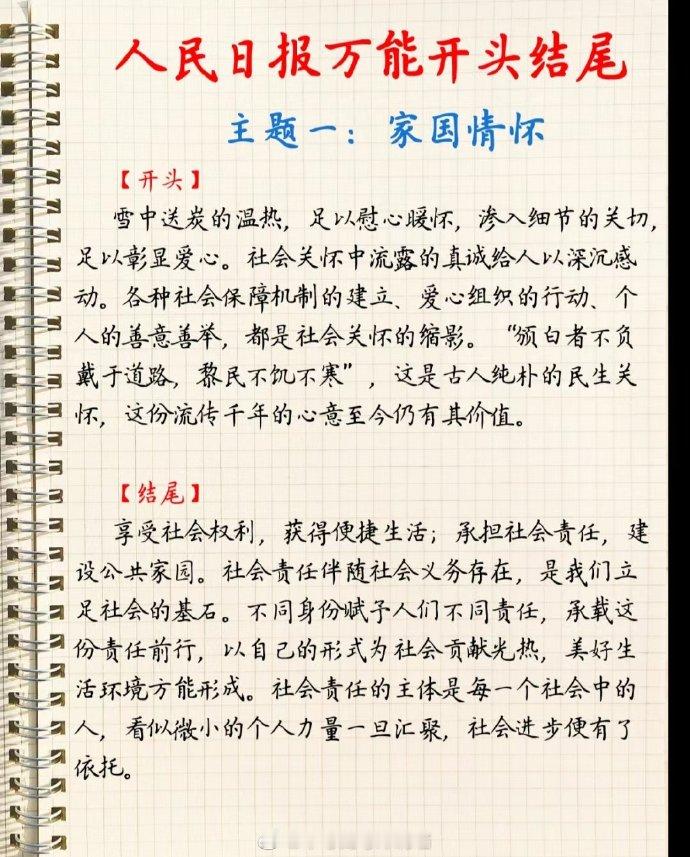 人民日报万能开头结尾
主题一：家国情怀
【开头】
雪中送炭的温热，足以慰心暖怀，渗入细节的关切，
足以彰显爱心。社会关怀中流露的真诚给人以深沉感
动。各种社会保障机制的建立、爱心组织的行动、个
人的善意善举，都是社会关怀的缩影。“颁白者不负
戴于道路，黎民不饥不寒”，这是古人纯朴的民生关
怀，这份流传千年的心意至今仍有其价值。
【结尾】
享受社会权利，获得便捷生活；承担社会责任，建
设公共家园。社会责任伴随社会义务存在，是我们立
足社会的基石。不同身份赋予人们不同责任，承载这
份责任前行，以自己的形式为社会贡献光热，美好生
活环境方能形成。社会责任的主体是每一个社会中的
人，看似微小的个人力量一旦汇聚，社会进步便有了
依托。